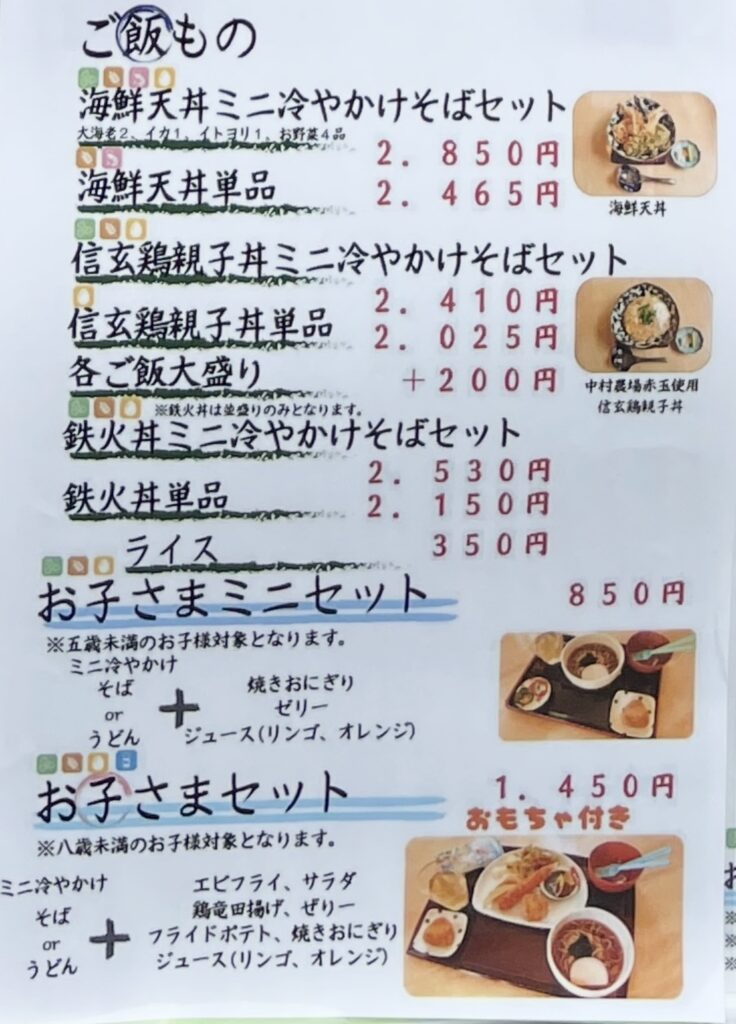 ご飯もの
海鮮天丼ミニ冷やかけそばセット
大海老2、イカ1、イトヨリ1、お野菜4品
2.850円
海鮮天丼単品 2.465円
海鮮天丼
信玄鶏親子丼ミニ冷やかけそばセット
2.410円
信玄鶏親子丼単品 2.025円
各ご飯大盛り +200円
中村農場赤玉使用
信玄鶏親子丼
※鉄火丼は並盛りのみとなります。
鉄火丼ミニ冷やかけそばセット
2.530円
鉄火丼単品 2.150円
ライス 350円
お子さまミニセット 850円
※五歳未満のお子様対象となります。
ミニ冷やかけ
そば 焼きおにぎり
or + ゼリー
うどん ジュース(リンゴ、オレンジ)
お子さまセット 1.450円
おもちゃ付き
※八歳未満のお子様対象となります。
ミニ冷やかけ エビフライ、サラダ
そば 鶏竜田揚げ、ぜりー
or + フライドポテト、焼きおにぎり
うどん ジュース(リンゴ、オレンジ)